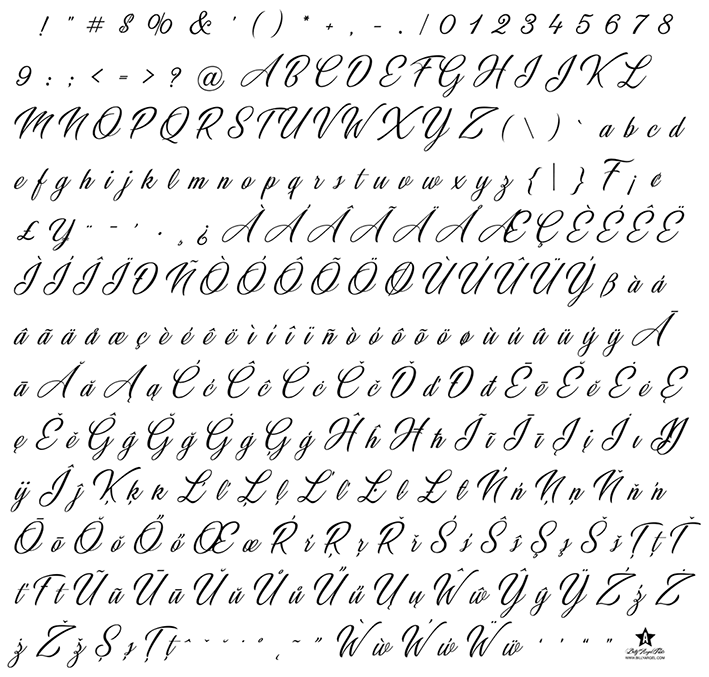 ! " # $ % & ' ( ) * + , - . / 0 1 2 3 4 5 6 7 8
9 : ; < = > ? @ A B C D E F G H I J K L
M N O P Q R S T U V W X Y Z ( \ ) ` a b c d
e f g h i j k l m n o p q r s t u v w x y z { | } F ¡ ¢
£ ¥ ¨ ¯ ´ · ¸ ¿ À Á Â Ã Ä Å Æ Ç È É Ê Ë
Ì Í Î Ï Ð Ñ Ò Ó Ô Õ Ö Ø Ù Ú Û Ü Ý ß à á
â ã ä å æ ç è é ê ë ì í î ï ñ ò ó ô õ ö ø ù ú û ü ý ÿ Ā
ā Ă ă Ą ą Ć ć Ĉ ĉ Ċ ċ Č č Ď ď Đ đ Ē ē Ĕ ĕ Ė ė Ę
ę Ě ě Ĝ ĝ Ğ ğ Ġ ġ Ģ ģ Ĥ ĥ Ħ ħ Ĩ ĩ Ī ī Į į İ ı Ĳ
ĳ Ĵ ĵ Ķ ķ ĸ Ĺ ĺ Ļ ļ Ľ ľ Ŀ ŀ Ł ł Ń ń Ņ ņ Ň ň ŉ
Ō ō Ŏ ŏ Ő ő Œ œ Ŕ ŕ Ŗ ŗ Ř ř Ś ś Ŝ ŝ Ş ş Š š Ţ ţ Ť
ť Ŧ ŧ Ũ ũ Ū ū Ŭ ŭ Ů ů Ű ű Ų ų Ŵ ŵ Ŷ ŷ Ÿ Ź ź Ż
ż Ž ž Ș ș Ț ț ˆ ˇ ˘ ˙ ˚ ˛ ˜ ˝ Ẁ ẁ Ẃ ẃ Ẅ ẅ ‘ ’ “ ”
WWW.BILLYARGEL.COM